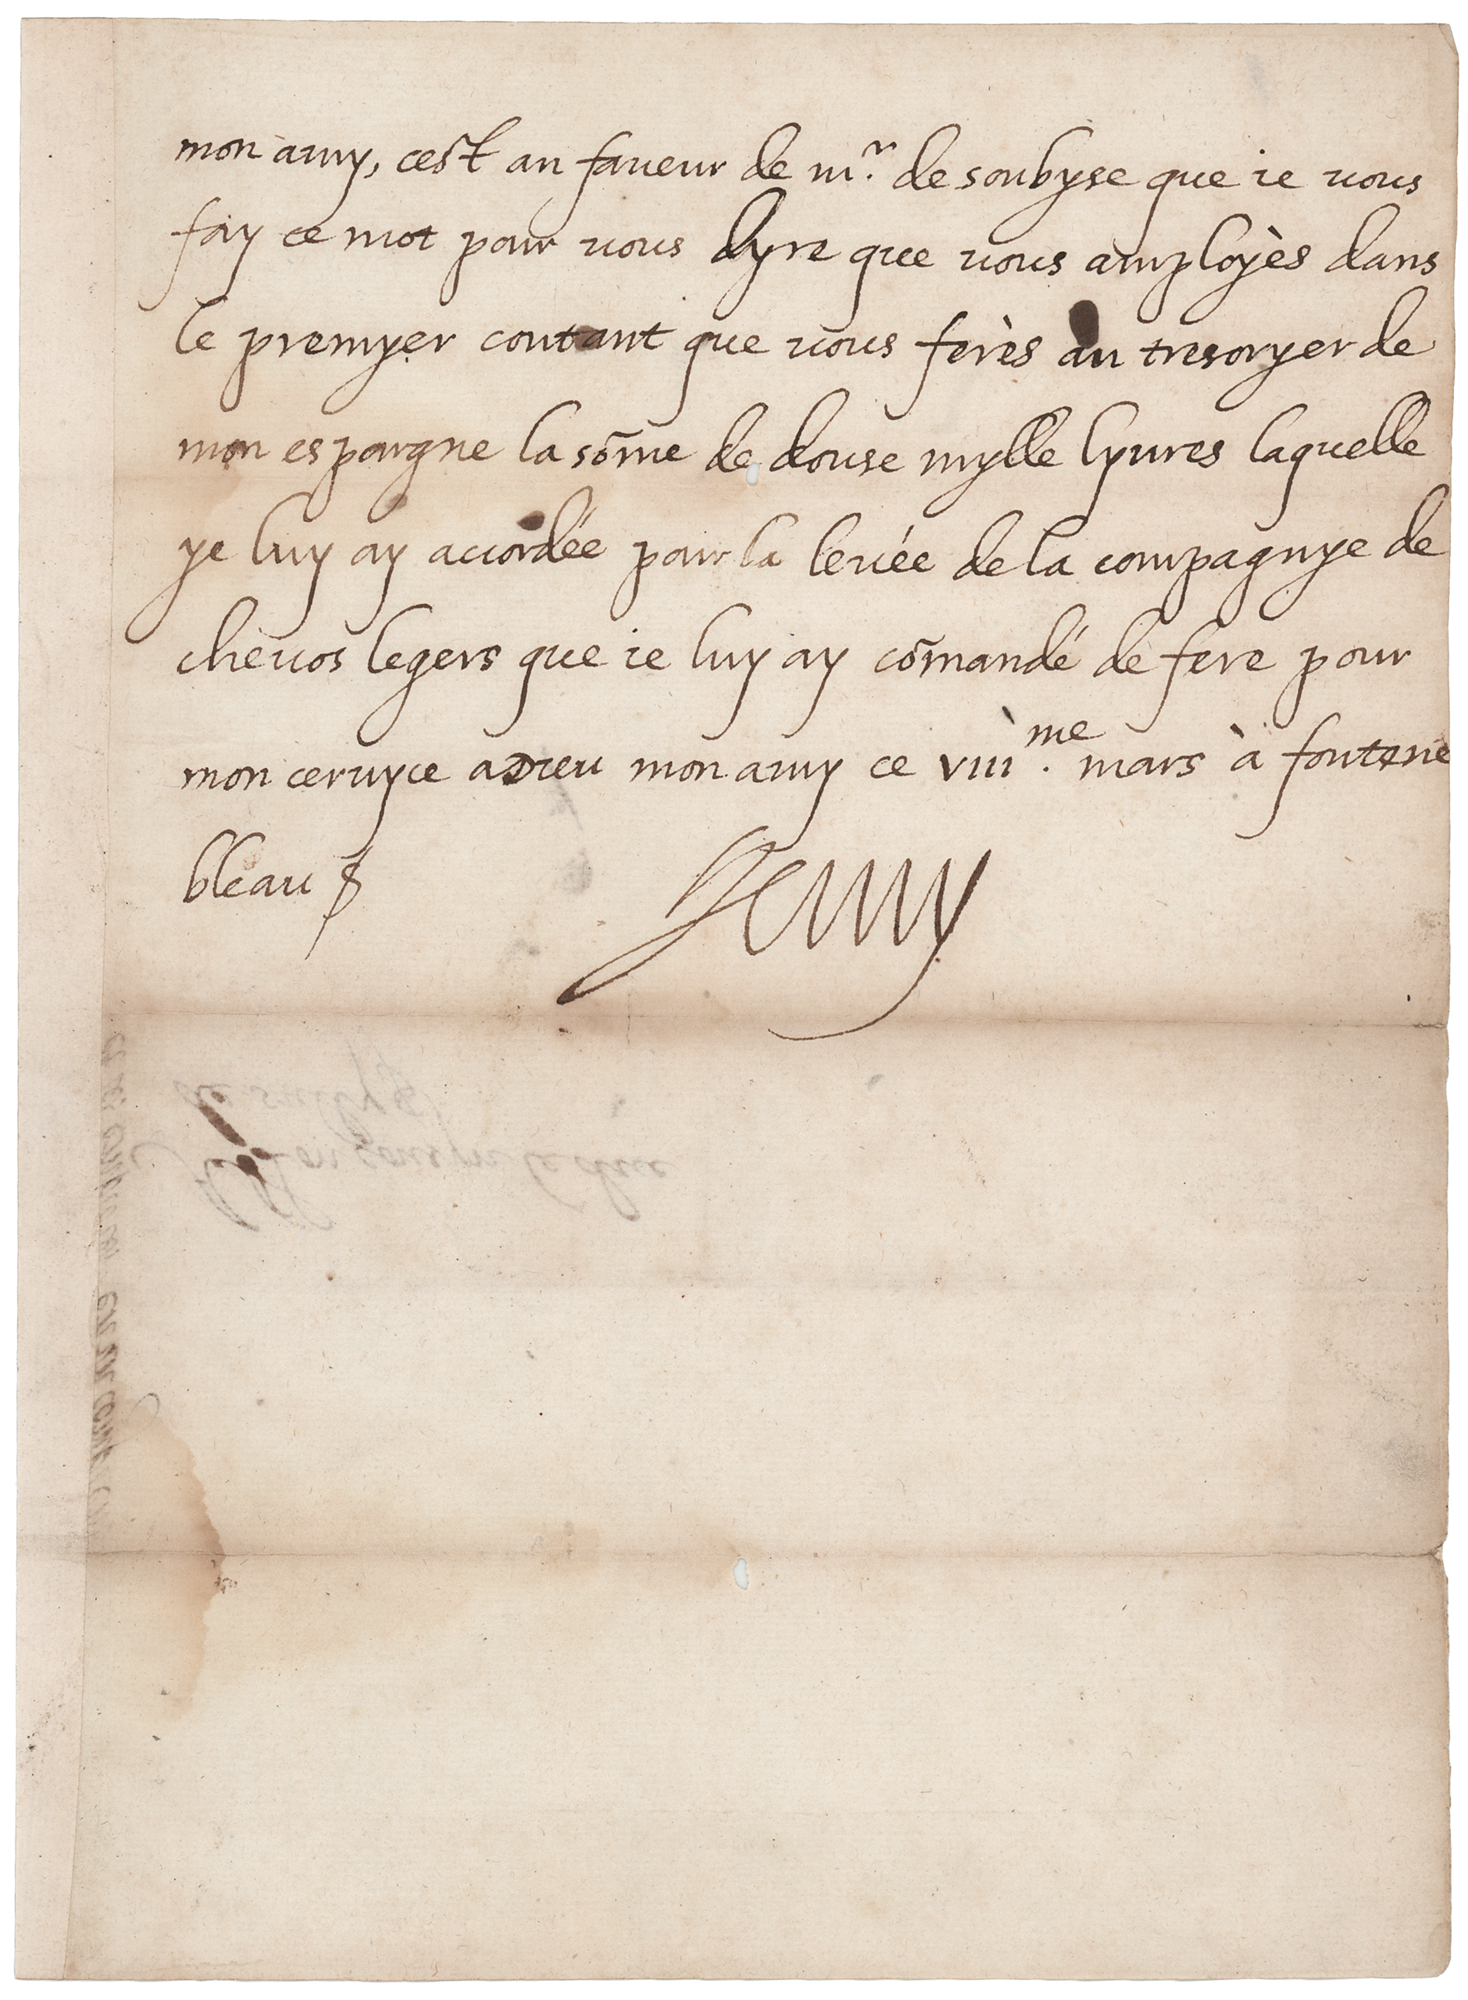 mon amy, cest an faueur de mr. de soubyse que ie vous
fay ce mot pour vous dyre que vous amployès dans
le premyer contant que vous ferès au tresoryer de
mon espargne la sōme de douse mylle lyures laquelle
ye luy ay accordée pour la leuée de la compagnye de
chevos legers que ie luy ay cōmandé de fere pour
mon ceruyce adieu mon amy ce viiime. mars à fontene
bleau
Henry